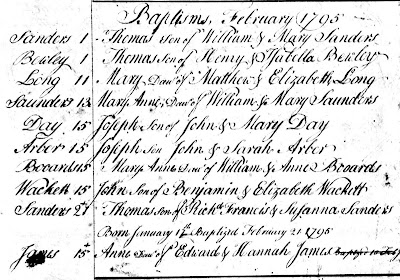 Baptisms, February 1795
Sanders 1 Thomas son of William & Mary Sanders
Bewley 1 Thomas son of Henry & Isabella Bewley
Long 11 Mary Daur of Matthew & Elizabeth Long
Saunders 13 Mary Anne Daur of William & Mary Saunders
Day 15 Joseph Son of John & Mary Day
Arber 15 Joseph Son John & Sarah Arber
Booards 15 Mary Anne Daur of William & Anne Booards
Wackett 15 John Son of Benjamin & Elizabeth Wackett
Sanders 21 Thomas Son of Richd Francis & Susanna Sanders
Born January 1st Baptized February 21 1795
James 15 Anne Daur of Edward & Hannah James